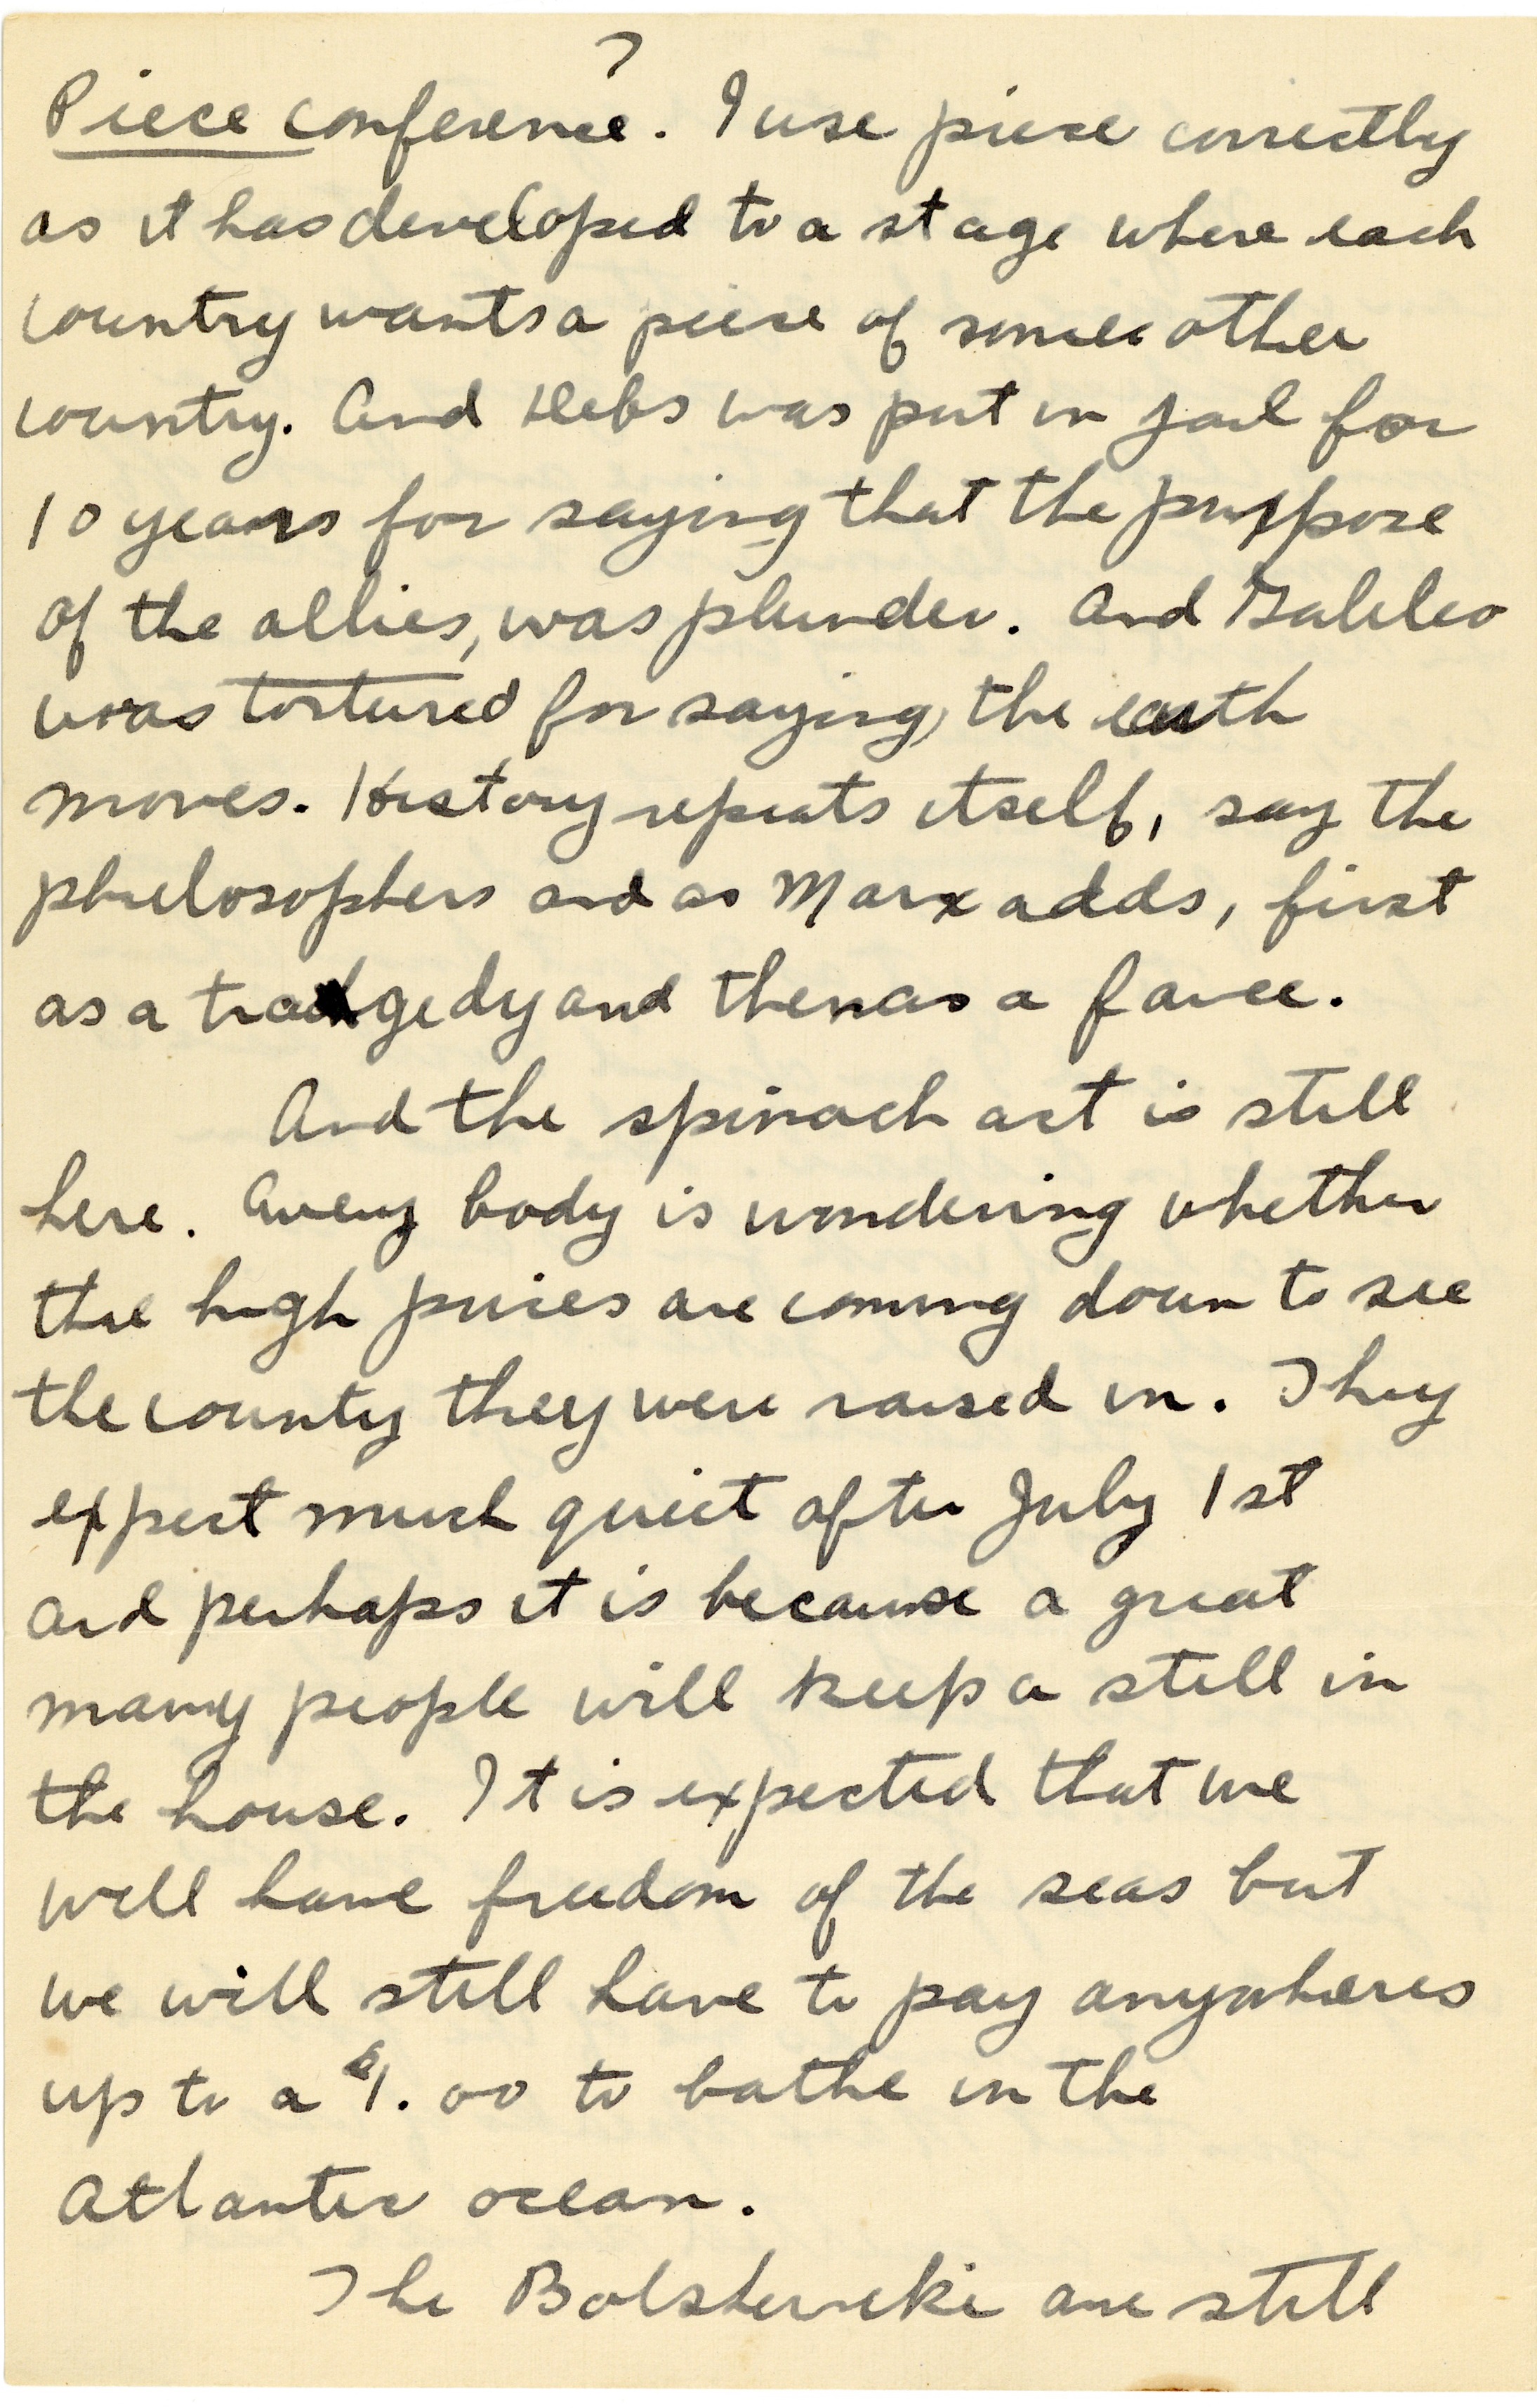 7
Piece conference. I use piece correctly
as it has developed to a stage where each
country wants a piece of some other
country. And Debs was put in jail for
10 years for saying that the purpose
of the allies, was plunder. And Galileo
was tortured for saying, the earth
moves. History repeats itself, say the
philosophers and as Marx adds, first
as a tragedy and then as a farce.
And the spinach act is still
here. Every body is wondering whether
the high prices are coming down to see
the county they were raised in. They
expect much quiet after July 1st
and perhaps it is because a great
many people will keep a still in
the house. It is expected that we
will have freedom of the seas but
we will still have to pay anywheres
up to a $1.00 to bathe in the
Atlantic ocean.
The Bolsheviki are still